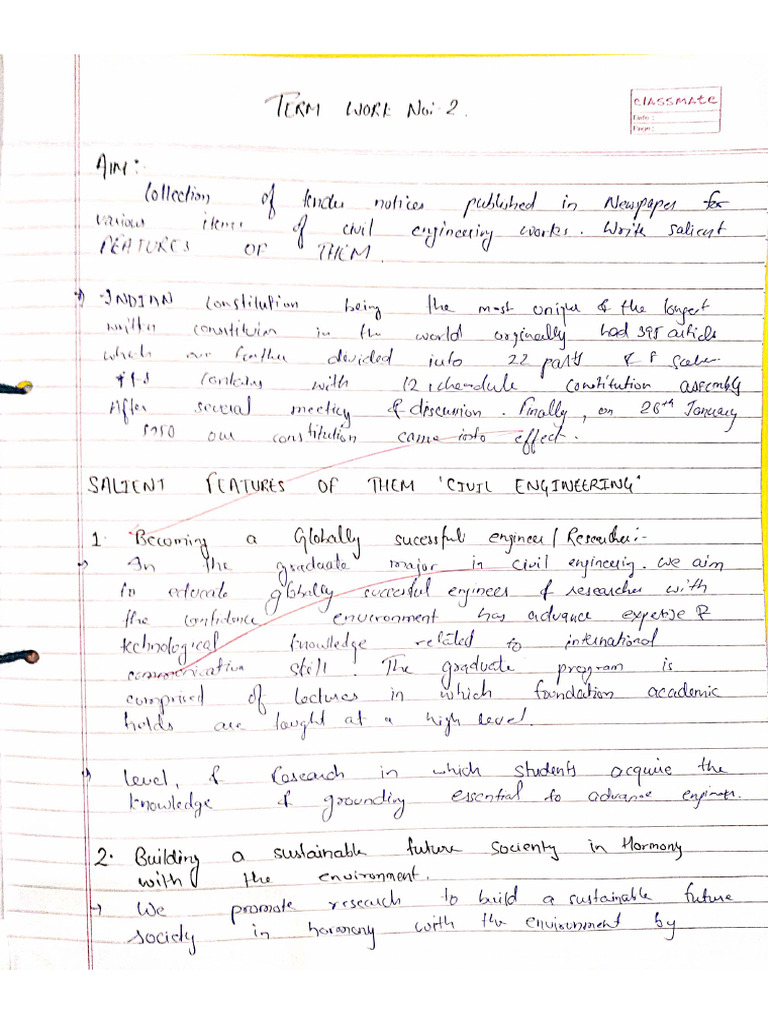 TERM WORK No:-2.
CLASSMATE
Date :
Page :
AIM:-
Collection of tender notices published in Newspaper for
various items of civil engineering works. Write salient
FEATURES OF THEM.
INDIAN constitution being the most unique & the longest
written constituion in the world orginally had 395 article
which are further devided into 22 parts & 8
contains with 12 schemdule constitution assembly
After several meeting & discussion. Finally, on 26th January
our constitution came into effect.
SALIENT FEATURES OF THEM 'CIVIL ENGINEERING'
1. Becoming a Globally sucessful engineer/Researcher:-
→ In the graduate major in civil engineering. we aim
to educate globally succesful engineer & researcher with
the confidence environment has advance expertise &
technological knowledge related to international
communication skill. The graduate program is
comprised of lectures in which foundation academic
holds are taught at a high level.
→ level, & Research in which students acquire the
knowledge & grounding essential to advance engineer.
2. Building a sustainable future Socienty in Hormony
with the environment.
→ We promote research to build a sustainable future
society in harmony with the environment by